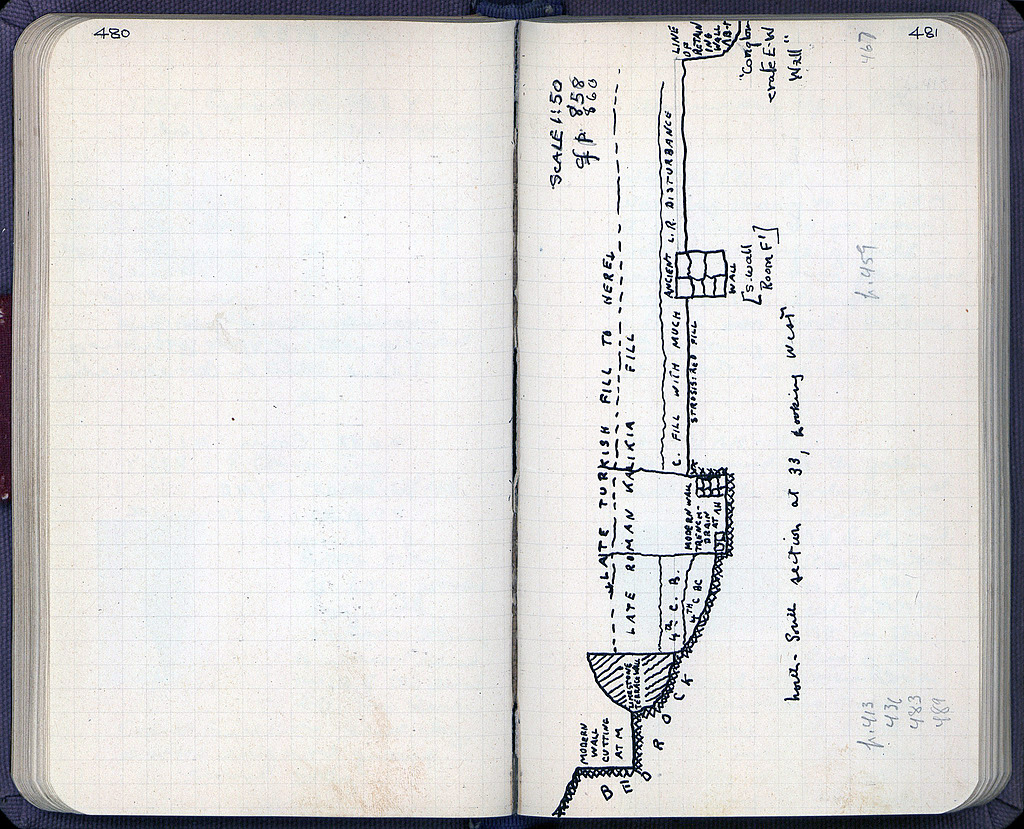 480
481
SCALE 1:50
cf p. 858
860
LATE TURKISH FILL TO HERE
LATE ROMAN KALIKIA FILL
MODERN
WALL
CUTTING
AT M
LIMESTONE
TERRACE WALL
BED ROCK
4TH C. B.
4TH C BC
MODERN WALL
TRENCH-
DRAIN
AT 1H
C. FILL WITH MUCH
STROSIS: RED FILL
ANCIENT L.R. DISTURBANCE
WALL
[S. Wall
Room F']
LINE
OF
RETAIN
ING
WALL
"Conglom
erate E-W
Wall"
North-South section at 33, looking West
p. 413
436
483
489
p. 459
467